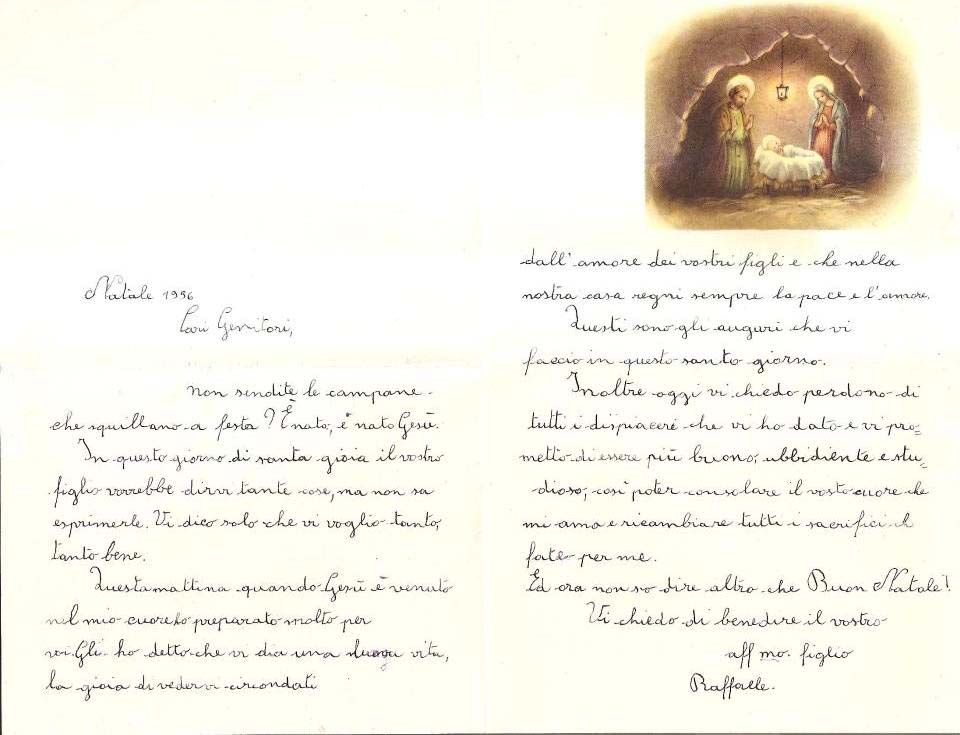 Natale 1956
Cari Genitori,
non sendite le campane
che squillano a festa? È nato, è nato Gesù.
In questo giorno di santa gioia il vostro
figlio vorrebbe dirvi tante cose, ma non sa
esprimerle. Vi dico solo che vi voglio tanto,
tanto bene.
Questa mattina quando Gesù è venuto
nel mio cuore ho preparato molto per
voi. Gli ho detto che vi dia una lunga vita,
la gioia di vedervi circondati
dall'amore dei vostri figli e che nella
nostra casa regni sempre la pace e l'amore.
Questi sono gli auguri che vi
faccio in questo santo giorno.
Inoltre oggi vi chiedo perdono di
tutti i dispiaceri che vi ho dato e vi pro=
metto di essere più buono, ubbidiente e stu=
dioso, così poter consolare il vosto cuore che
mi ama e ricambiare tutti i sacrifici
fate per me.
Ed ora non so dire altro che Buon Natale!
Vi chiedo di benedire il vostro
aff mo. figlio
Raffaele.